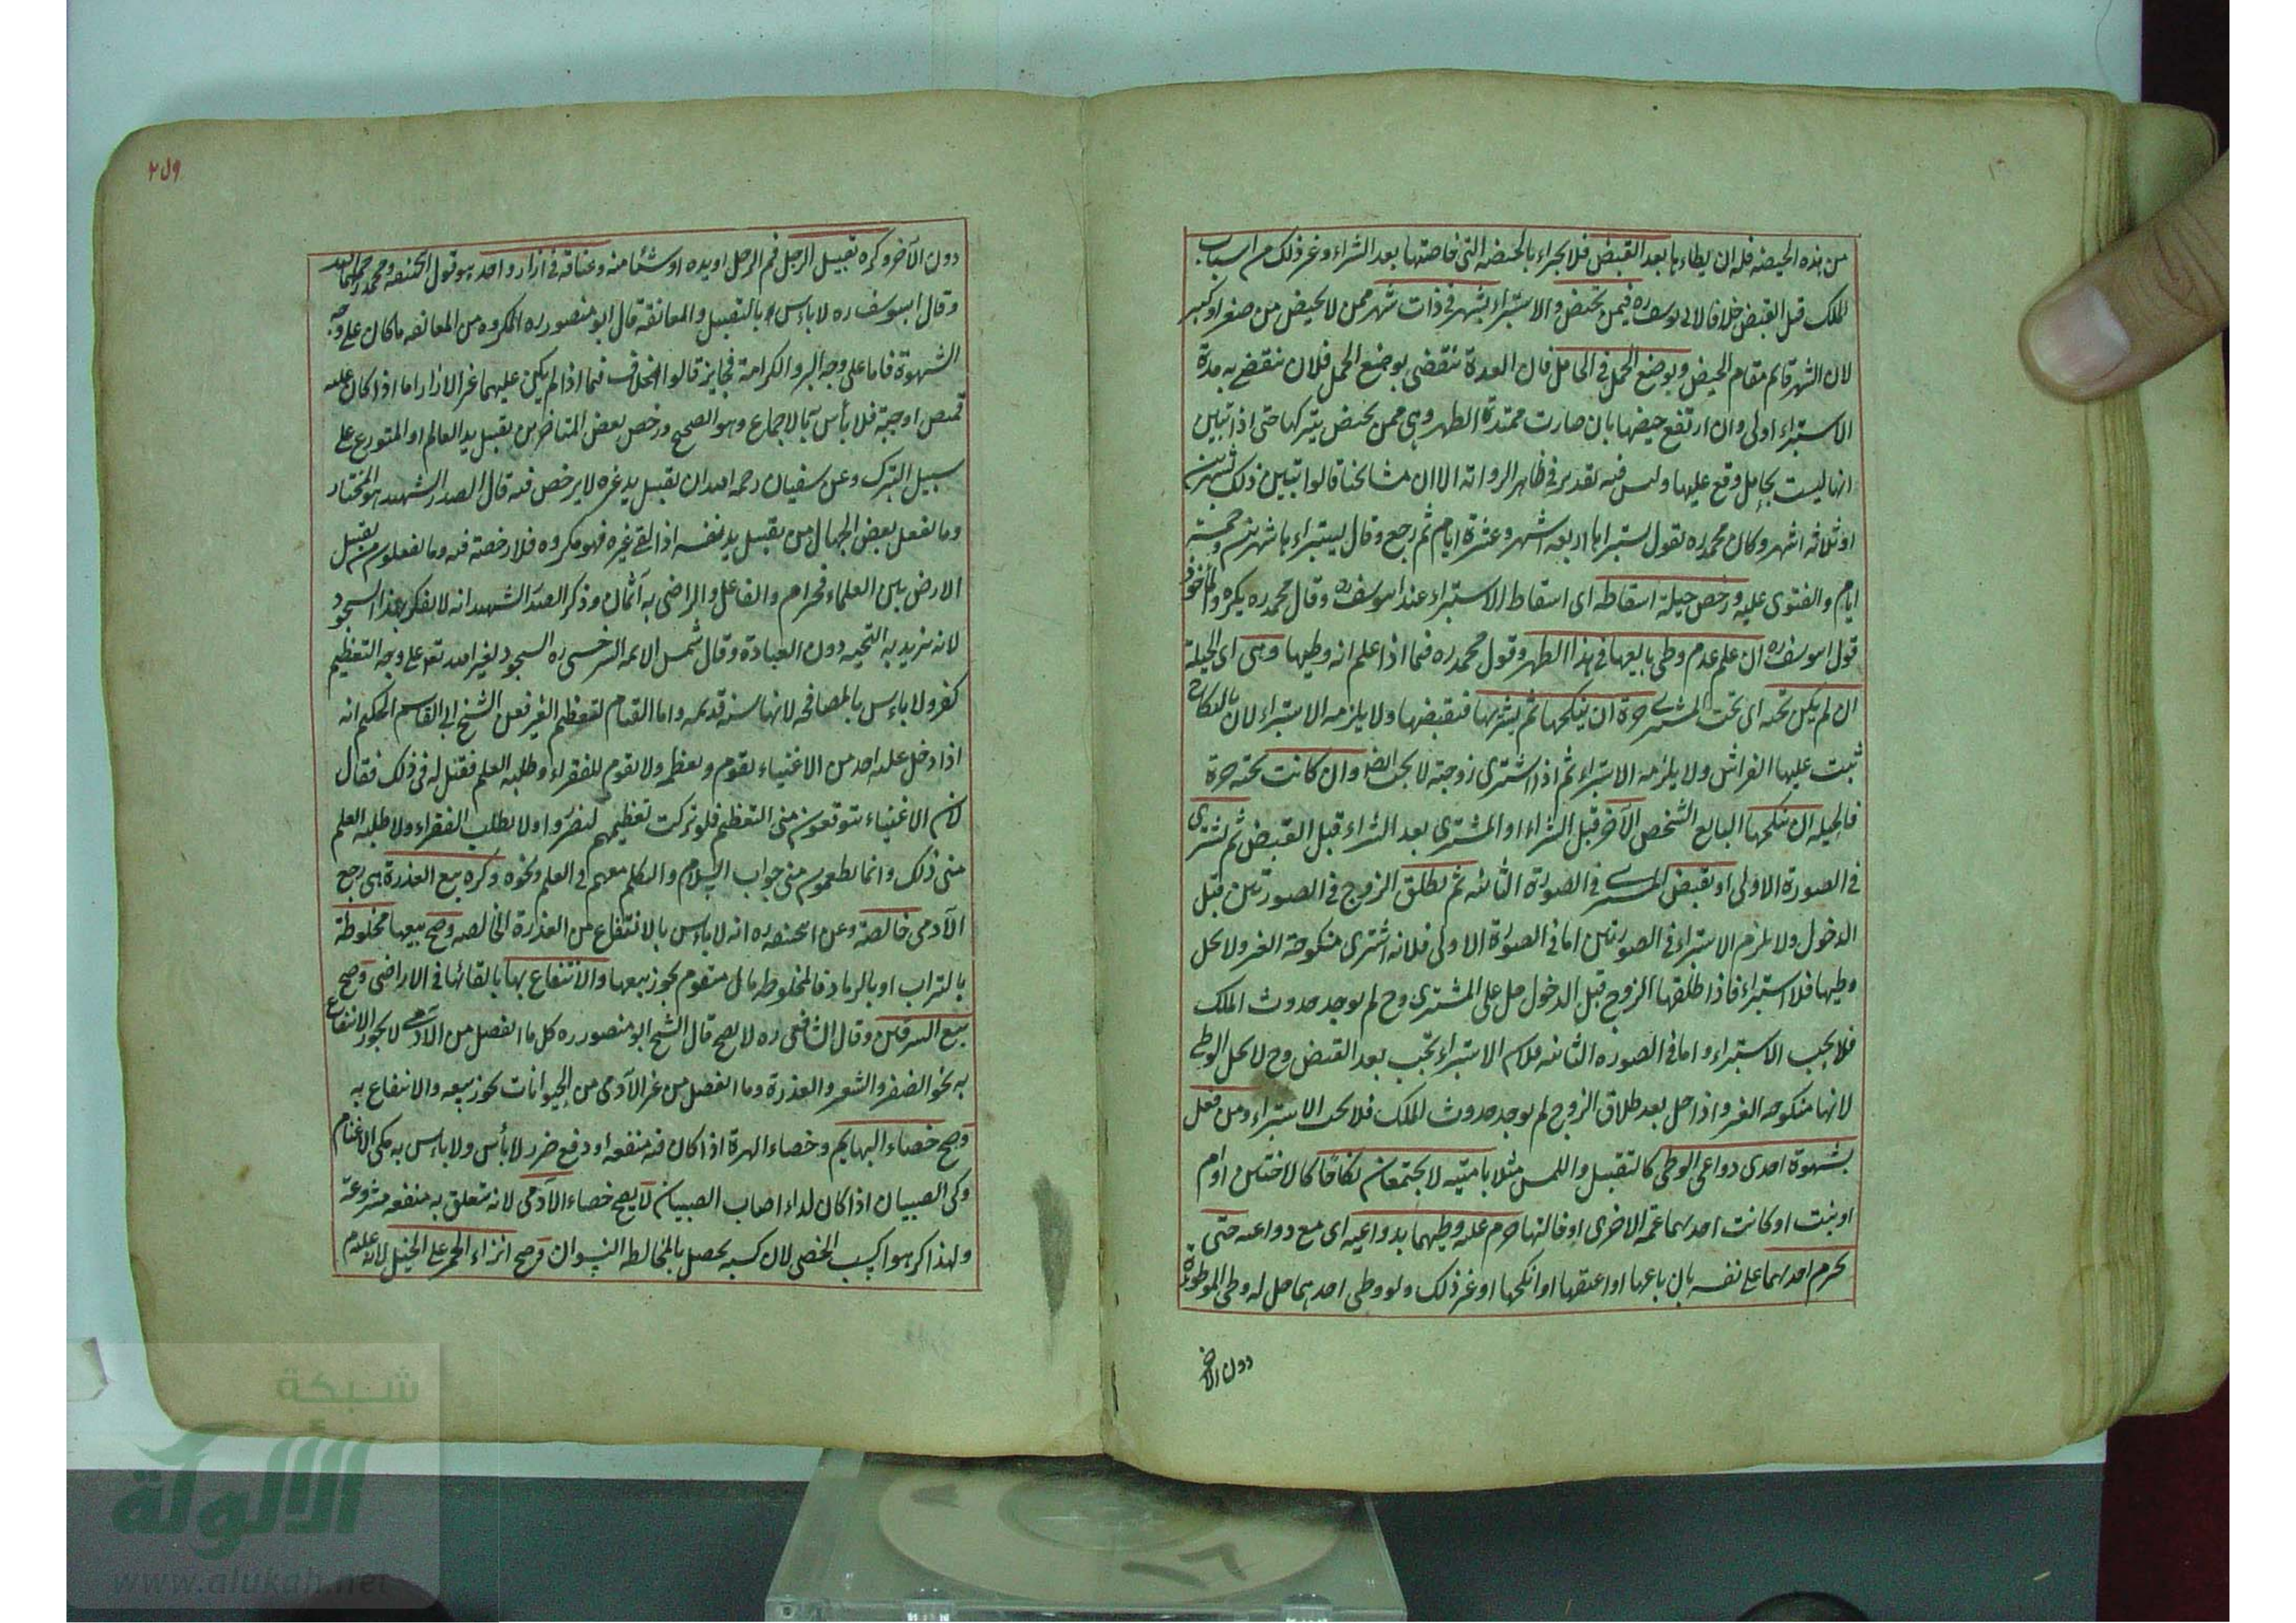 من هذه الحيضة فله ان يطاءها بعد القبض فلا يجزاء بالحيضة التى حاضتها بعد الشراء وغير ذلك من اسباب
الملك قبل القبض خلافا لابى يوسف ره فيمن تحيض والاستبراء بشهر فى ذات شهر ممن لا يحيض من صغر او كبر
لان الشهر قايم مقام الحيض وبوضع الحمل فى الحامل فان العدة تنقضى بوضع الحمل فلان تنقضے به مدة
الاستبراء اولى وان ارتفع حيضها بان صارت ممتدة الطهر وهى ممن تحيض يتركها حتى اذا تبين
انها ليست بحامل وقع عليها وليس فيه تقدير فى ظاهر الرواية الا ان مشايخنا قالوا تبين ذلك بشهرين
او ثلاثة اشهر وكان محمد ره يقول يستبرأها اربعة اشهر وعشرة ايام ثم رجع وقال يستبراءها شهرين وخمسة
ايام والفتوى عليه ورخص حيلة اسقاطه اى اسقاط الاستبراء عند ابيوسف ره وقال محمد ره يكره والماخوذ
قول ابيوسف ره ان علم عدم وطى بايعها فى هذا الطهر وقول محمد ره فيما اذا علم انه وطيها وهى اى الحيلة
ان لم يكن تحته اى تحت المشترے حرة ان ينكحها ثم يشتريها فيقبضها ولا يلزمه الاستبراء لان بالنكاح
ثبت عليها الفراش ولا يلزمه الاستبراء ثم اذا اشترى زوجته لا يجب ايضا وان كانت تحته حرة
فالحيلة ان ينكحها البايع الشخص الآخر قبل الشراء او المشترى بعد الشراء قبل القبض ثم يشترى
فى الصورة الاولى او يقبض المشترے فى الصورة الثانية ثم يطلق الزوج فى الصورتين قبل
الدخول ولا يلزم الاستبراء فى الصورتين اما فى الصورة الاولى فلانه اشترى منكوحة الغير ولا يحل
وطيها فلا استبراء فاذا طلقها الزوج قبل الدخول حل على المشترى وح لم يوجد حدوث الملك
فلا يجب الاستبراء واما فى الصورة الثانية فلان الاستبراء يجب بعد القبض وح لا يحل الوطى
لانها منكوحة الغير واذا حل بعد طلاق الزوج لم يوجد حدوث الملك فلا يجب الاستبراء ومن فعل
بشهوة احدى دواعى الوطى كالتقبيل واللمس مثلا بامتيه لا يجتمعان نكاحا كالاختين او ام
او بنت او كانت احديهما عمة الاخرى او خالتها حرم عليه وطيهما بدواعيه اى مع دواعيه حتى
يحرم احديهما على نفسه بان باعها او اعتقها او انكحها او غير ذلك ولو وطى احديهما حل له وطى الموطوءة
دون الآخر
٢٧٩
دون الآخر وكره تقبيل الرجل فم الرجل او يده او شيئا منه وعناقه فى ازار واحد هو قول ابيحنيفه ومحمد رحمهما الله
وقال ابيوسف ره لا باءس بالتقبيل والمعانقة قال ابو منصور ره المكروه من المعانقه ما كان على وجه
الشهوة فاما على وجه البر والكرامة فجايز قالوا الخلاف فيما اذا لم يكن عليهما غير الازار اما اذا كان عليه
قميص او جبة فلا بأس به بالاجماع وهو الصحيح ورخص بعض المتاخرين تقبيل يد العالم او المتورع على
سبيل التبرك وعن سفيان رحمه الله ان تقبيل يد غيره لا يرخص فيه قال الصدر الشهيد هو المختار
وما يفعل بعض الجهال من تقبيل يد نفسه اذا لقى غيره فهو مكروه فلا رخصة فيه وما يفعلون من تقبيل
الارض بين العلماء فحرام والفاعل والراضى به آثمان وذكر الصدر الشهيد انه لا يفكر بهذا السجود
لانه يريد به التحية دون العبادة وقال شمس الايمه السرخسى ره السجود لغير الله تعا على وجه التعظيم
كفر ولا باءس بالمصافحه لانها سنة قديمه واما القيام لتعظيم الغير فعن الشيخ ابى القاسم الحكيم انه
اذا دخل عليه احد من الاغنياء يقوم ويعظم ولا يقوم للفقراء وطلبه العلم فقيل له فى ذلك فقال
لان الاغنياء يتوقعون منى التعظيم فلو تركت تعظيمهم لتضروا ولا يطلب الفقراء ولا طلبه العلم
منى ذلك وانما يطمعون منى جواب السلام والتكلم معهم فى العلم ونحوه وكره بيع العذرة هى رجيع
الآدمى خالصة وعن ابيحنيفه ره انه لا باءس بالانتفاع من العذرة الخالصه وصح بيعها مخلوطة
بالتراب او بالرماد فالمخلوطه مال متقوم يجوز بيعها والانتفاع بها بالقائها فى الاراضى وصح
بيع السرقين وقال الشافعى ره لا يصح قال الشيخ ابو منصور ره كل ما انفصل من الآدمے لا يجوز الانتفاع
به نحو الضفر والشعر والعذرة وما انفصل من غير الآدمى من الحيوانات يجوز بيعه والانتفاع به
وصح خصاء البهايم وخصاء الهرة اذا كان فيه منفعه او دفع ضرر لا بأس ولا باءس به كى الاغنام
وكى الصبيان اذا كان لداء اصاب الصبيان لا يصح خصاء الآدمى لانه يتعلق به منفعه مشروعة
ولهذا كرهوا كسب الخصى لان كسبه يحصل بالمخالطة النسوان وصح انزاء الحمر على الخيل لانه عليه م
شبكة
الألوكة
www.alukah.net